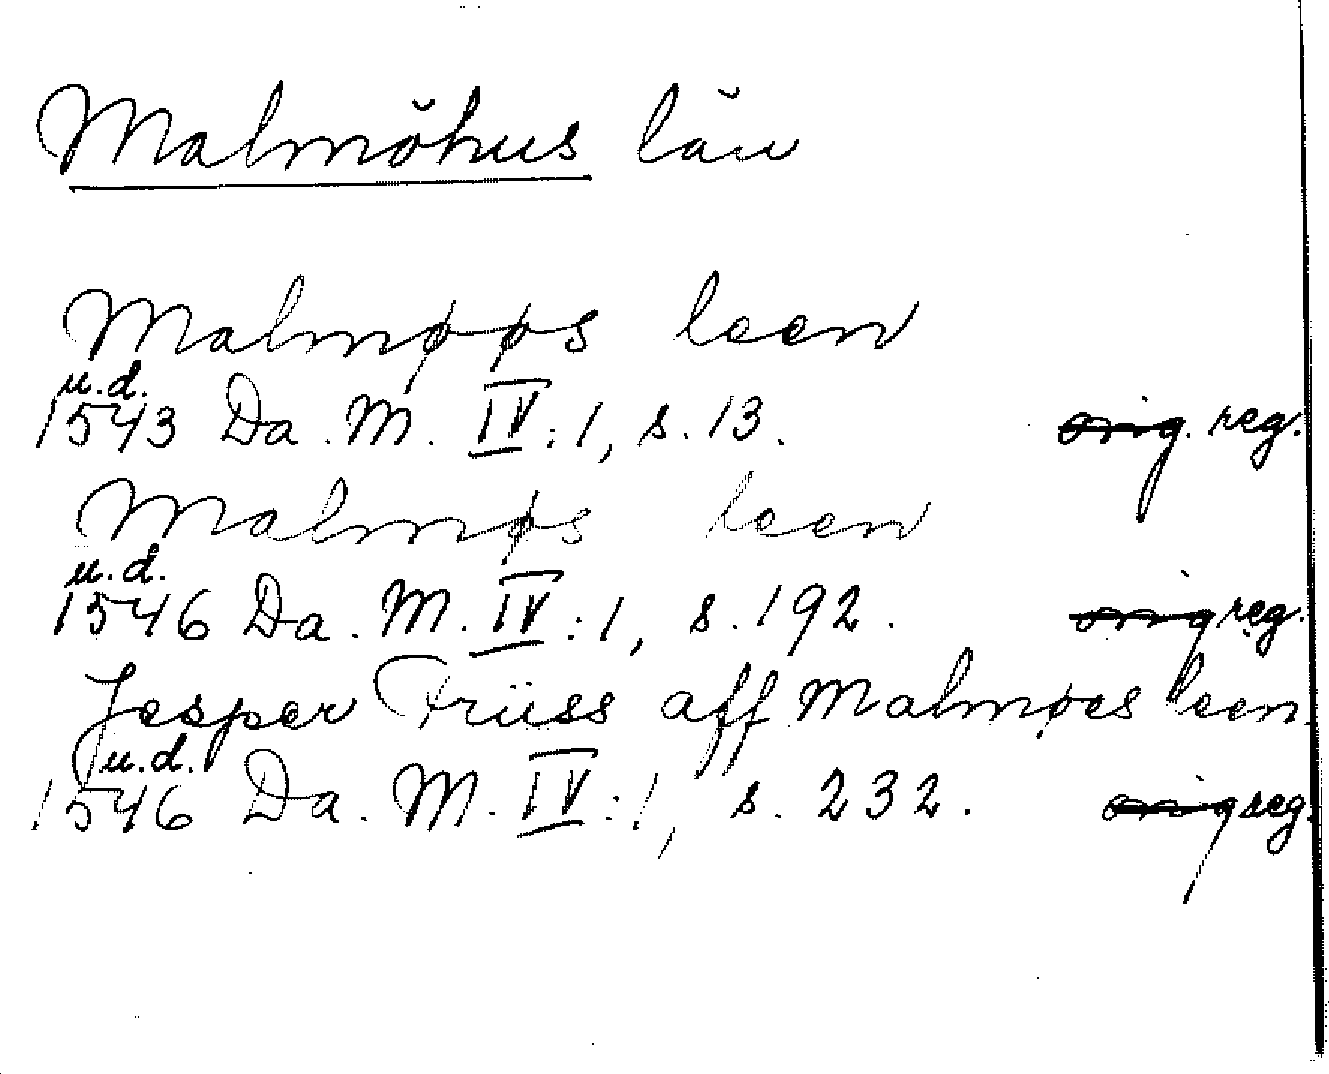 Malmöhus län
Malmøøs leen
u.d.
1543 Da. M. IV:1, s. 13. orig. reg.
Malmøs leen
u.d.
1546 Da. M. IV:1, s. 192. orig reg.
Jesper Früss aff Malmøes leen
u.d.
1546 Da. M. IV:1, s. 232. orig reg.